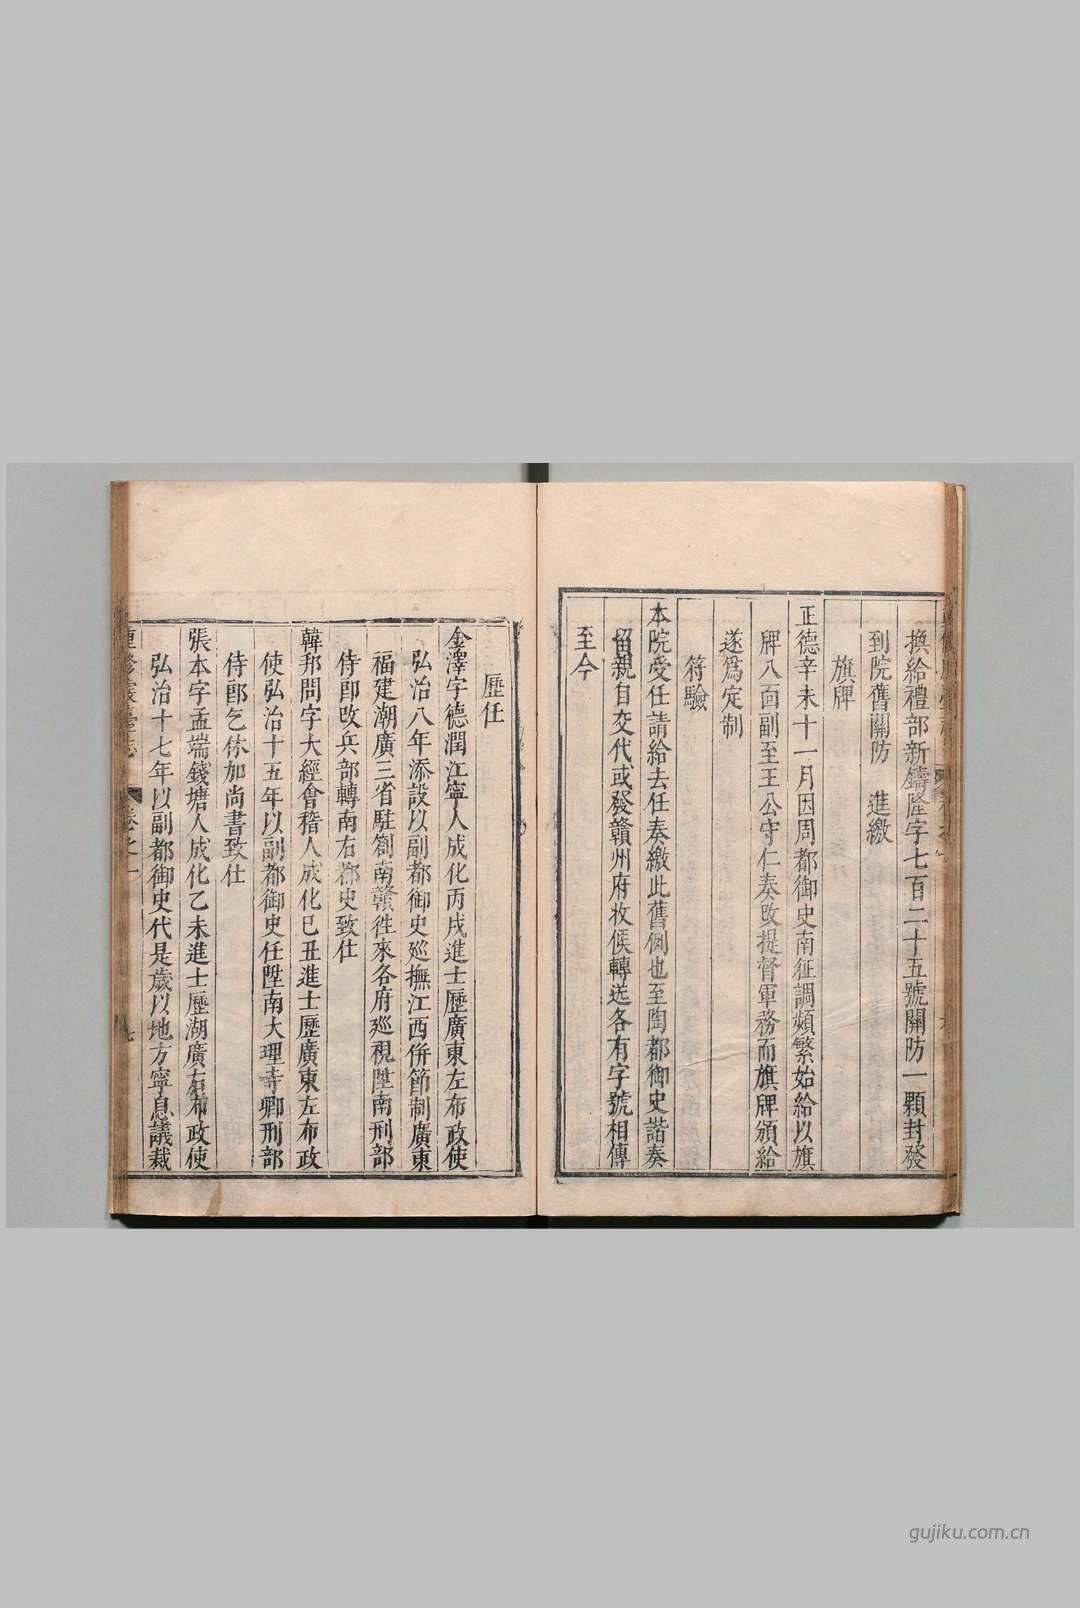 換給禮部新鑄隆字七百二十五號關防一顆封發
到院舊關防 進繳
旗牌
正德辛未十一月因周都御史南征調頻繁始給以旗
牌八面副至王公守仁奏改提督軍務而旗牌頒給
遂爲定制
符驗
本院受任請給去任奏繳此舊例也至陶都御史諧奏
留親自交代或發贛州府收候轉送各有字號相傳
至今
歷任
金澤字德潤江寧人成化丙戌進士歷廣東左布政使
弘治八年添設以副都御史廵撫江西併節制廣東
福建湖廣三省駐劄南贛徃來各府廵視陞南刑部
侍郎改兵部轉南右都史致仕
韓邦問字大經會稽人成化己丑進士歷廣東左布政
使弘治十五年以副都御史任陞南大理寺卿刑部
侍郎乞休加尚書致仕
張本字孟端錢塘人成化乙未進士歷湖廣右布政使
弘治十七年以副都御史代是歲以地方寧息議裁
重修虔臺志 卷之一 七
gujiku.com.cn